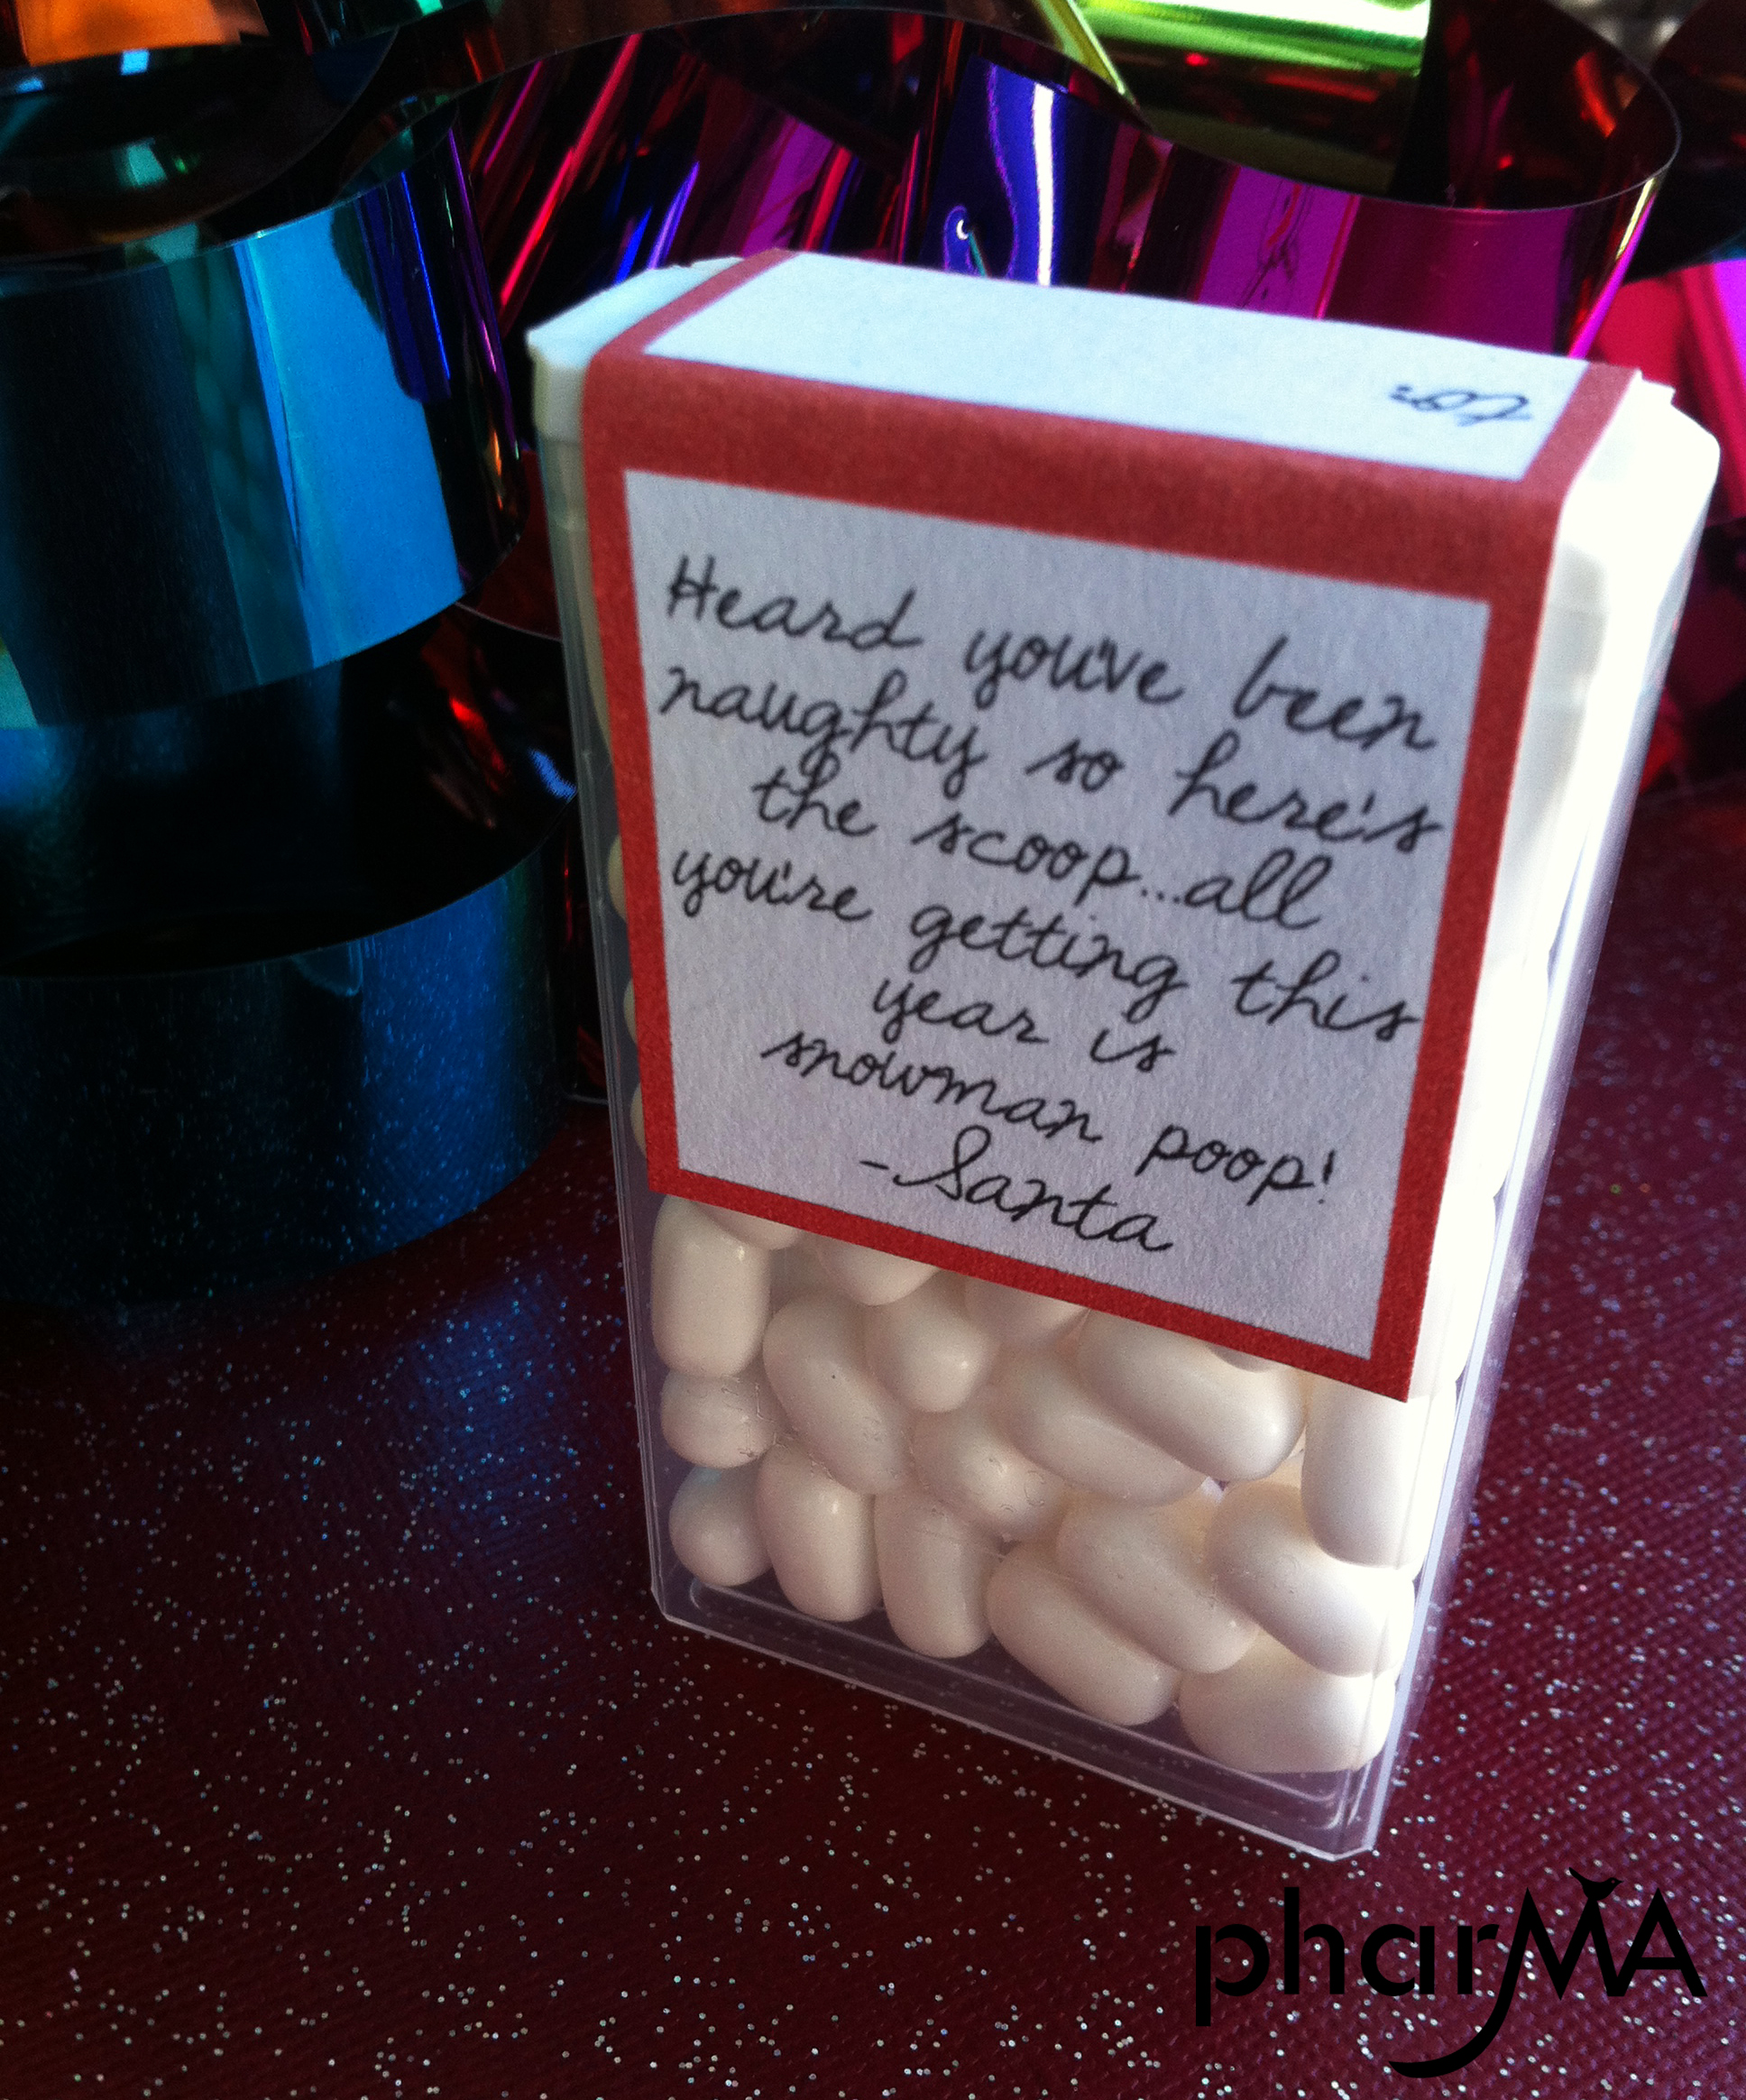 to:
Heard you've been
naughty so here's
the scoop...all
you're getting this
year is
snowman poop!
-Santa
pharMA